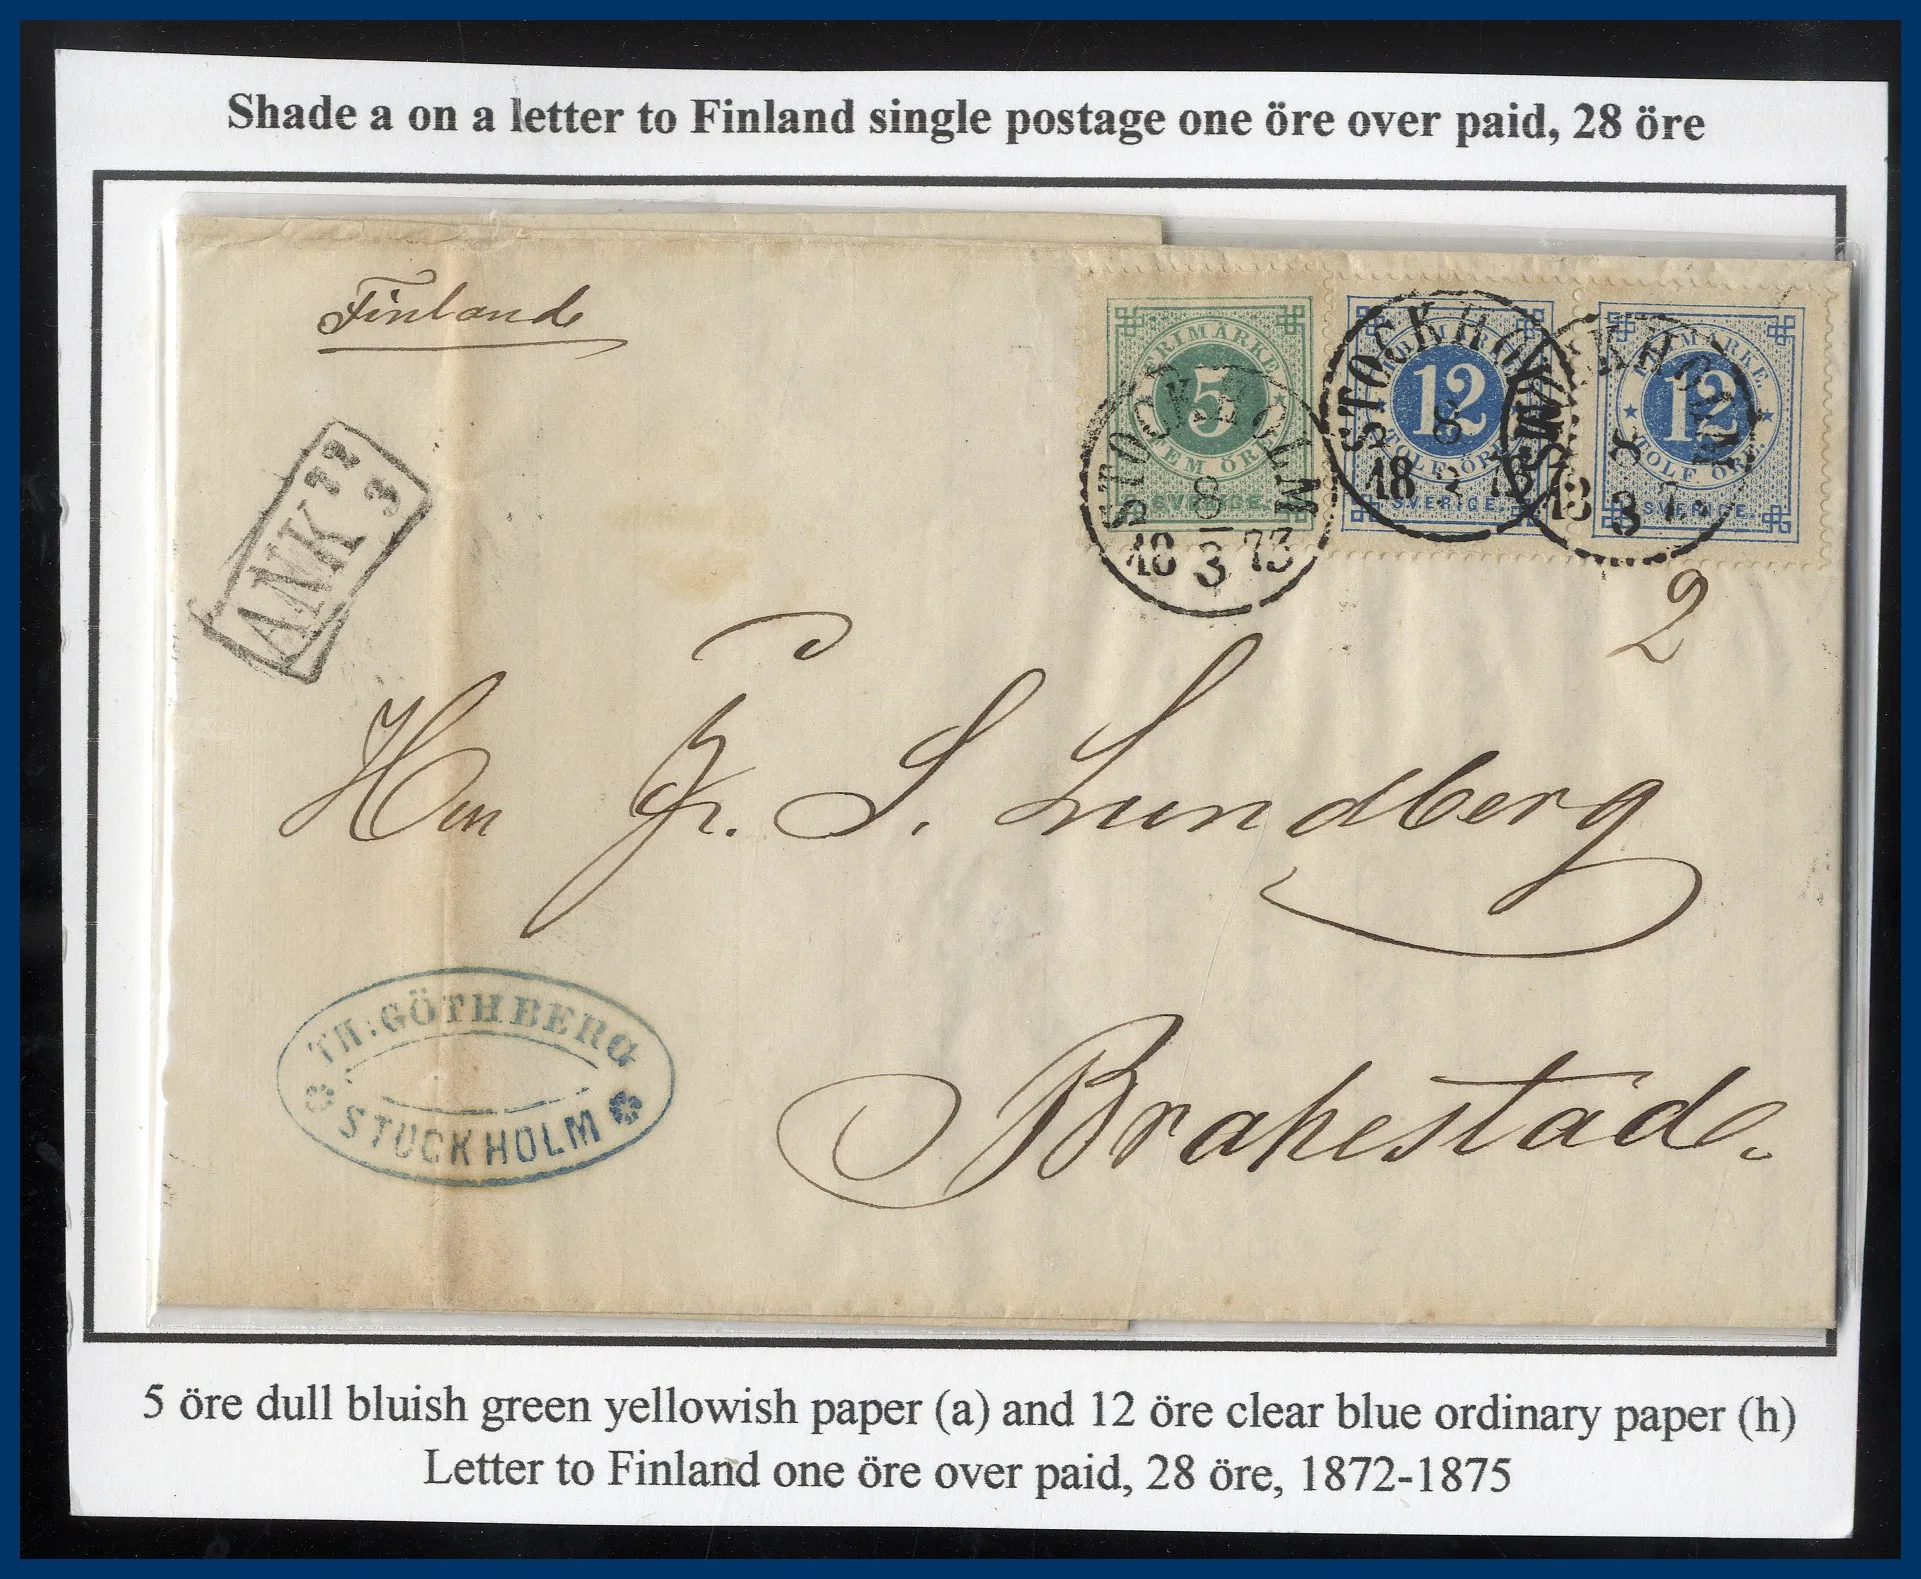 Shade a on a letter to Finland single postage one öre over paid, 28 öre
Finland
FRIMÄRKE
5
FEM ÖRE
SVERIGE.
12
TOLF ÖRE.
SVERIGE.
FRIMÄRKE
12
TOLF ÖRE.
SVERIGE.
STOCKHOLM
8
3
18 73
STOCKHOLM
8
18
STOCKHOLM
8
3
18 7
ANK
3
2
Hrr Fr. S. Lundberg
Brahestad.
TH: GÖTHBERG
STOCKHOLM
5 öre dull bluish green yellowish paper (a) and 12 öre clear blue ordinary paper (h)
Letter to Finland one öre over paid, 28 öre, 1872-1875